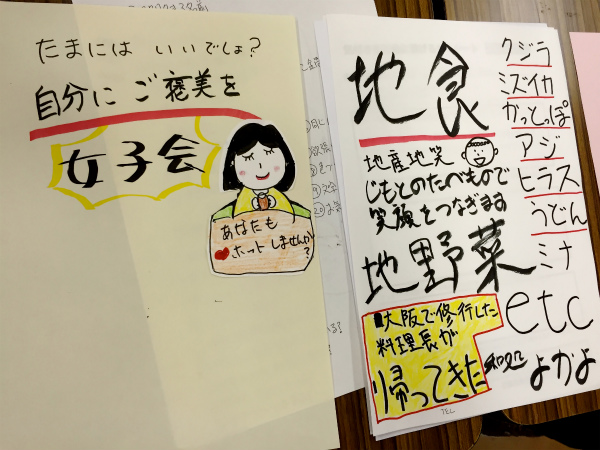 たまには いいでしょ？
自分に ご褒美を
女子会
あなたも
ホットしませんか？
地食
地産地笑
じもとのたべもので
笑顔をつなぎます
地野菜
大阪で修行した
料理長が
帰ってきた
クジラ
ミズイカ
かっとっぽ
アジ
ヒラス
うどん
ミナ
etc
和処
よかよ
TEL